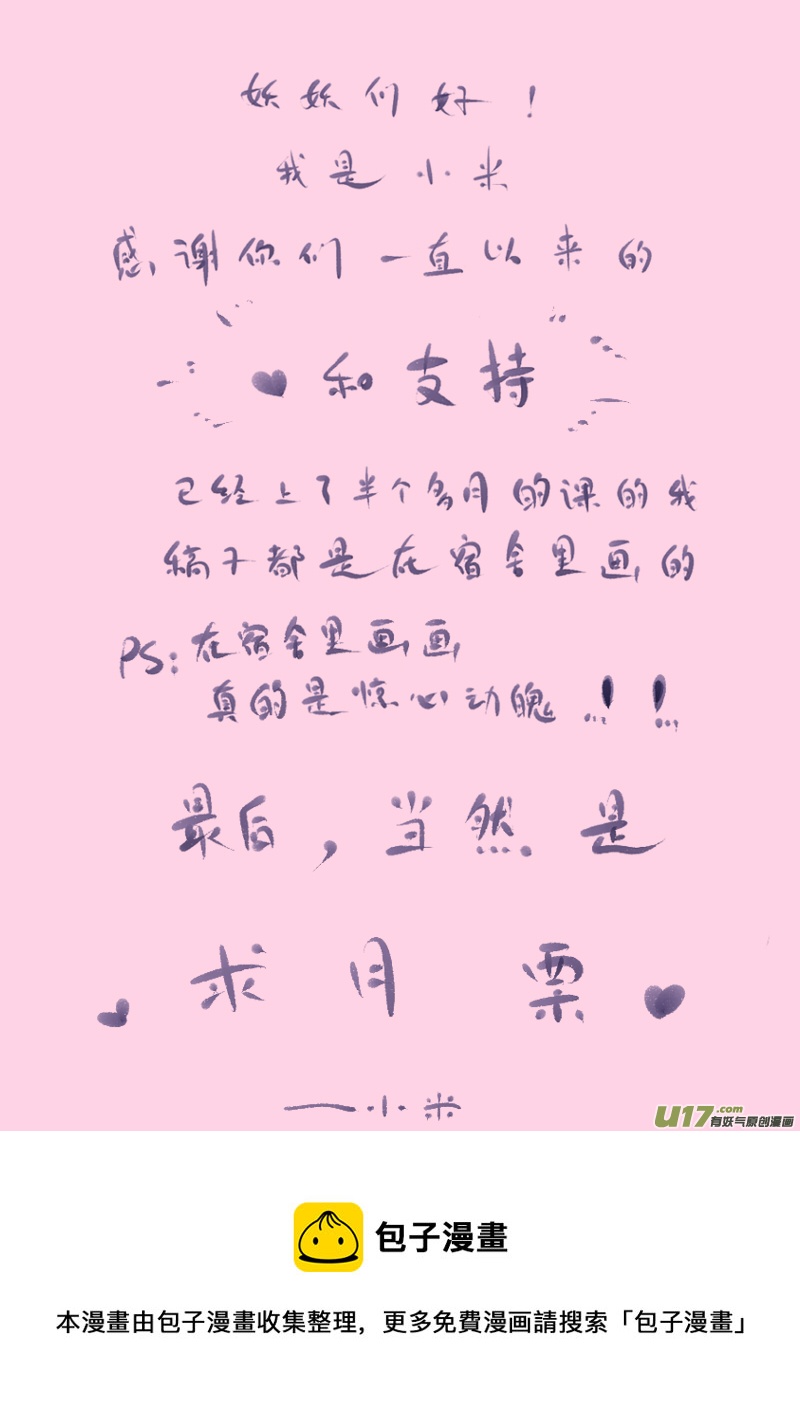 妖妖们好!
我是小米
感谢你们一直以来的
♥和支持
已经上了半个多月的课的我
稿子都是在宿舍里画的
PS:在宿舍里画画
真的是惊心动魄...!...!...
最后,当然是
求月票
——小米
U17.com
有妖气原创漫画
包子漫畫
本漫畫由包子漫畫收集整理,更多免費漫画請搜索「包子漫畫」